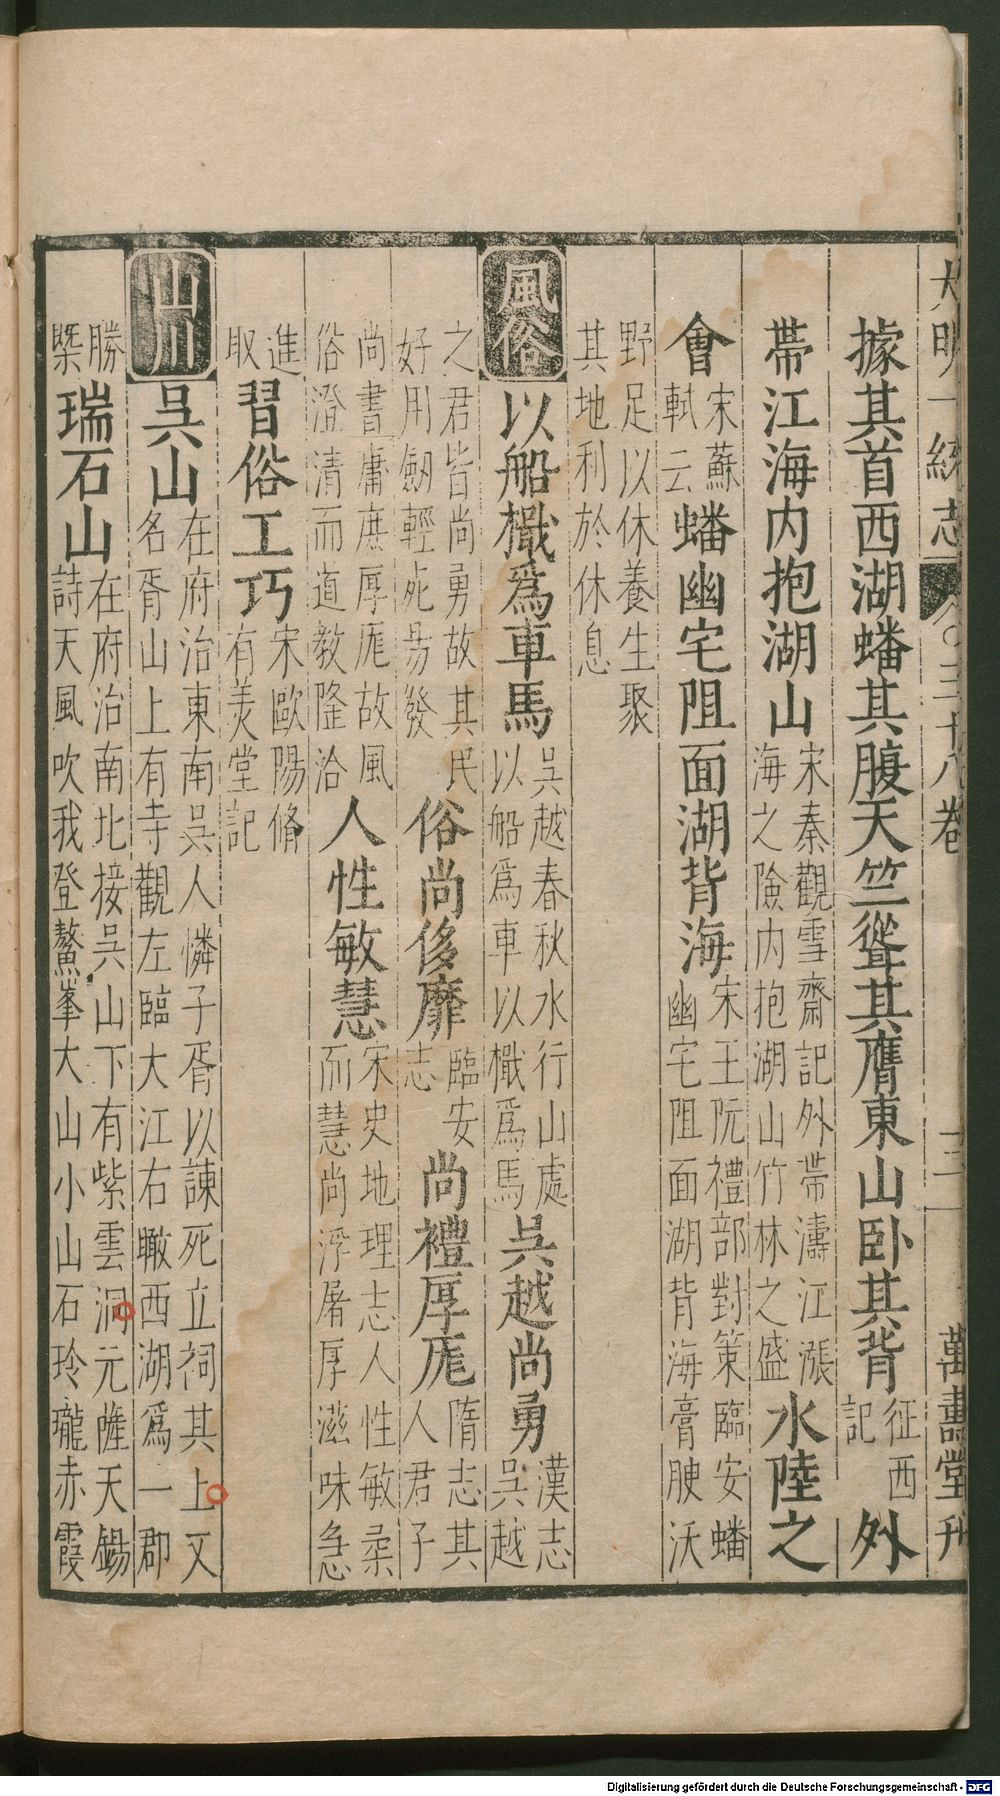 大明一統志 卷之三十八卷 三 萬壽堂刊
據其首西湖蟠其腹天竺聳其膺東山卧其背征西記外
帶江海内抱湖山宋秦觀雪齋記外帶濤江漲海之險内抱湖山竹林之盛水陸之
會宋蘇軾云蟠幽宅阻面湖背海宋王阮禮部對策臨安蟠幽宅阻面湖背海膏腴沃
野足以休養生聚其地利於休息
風俗以船檝爲車馬吳越春秋水行山處以船爲車以檝爲馬吳越尚勇漢志吳越
之君皆尚勇故其民好用劒輕死易發俗尚侈靡臨安志尚禮厚庬隋志其人君子
尚書庸庶厚庬故風俗澄清而道教隆洽人性敏慧宋史地理志人性敏柔而慧尚浮屠厚滋味急
進取習俗工巧宋歐陽脩有美堂記
山川吳山在府治東南吳人憐子胥以諫死立祠其上又名胥山上有寺觀左臨大江右瞰西湖爲一郡
勝槩瑞石山在府治南北接吳山下有紫雲洞元薩天錫詩天風吹我登鰲峯大山小山石玲瓏赤霞
Digitalisierung gefördert durch die Deutsche Forschungsgemeinschaft - DFG